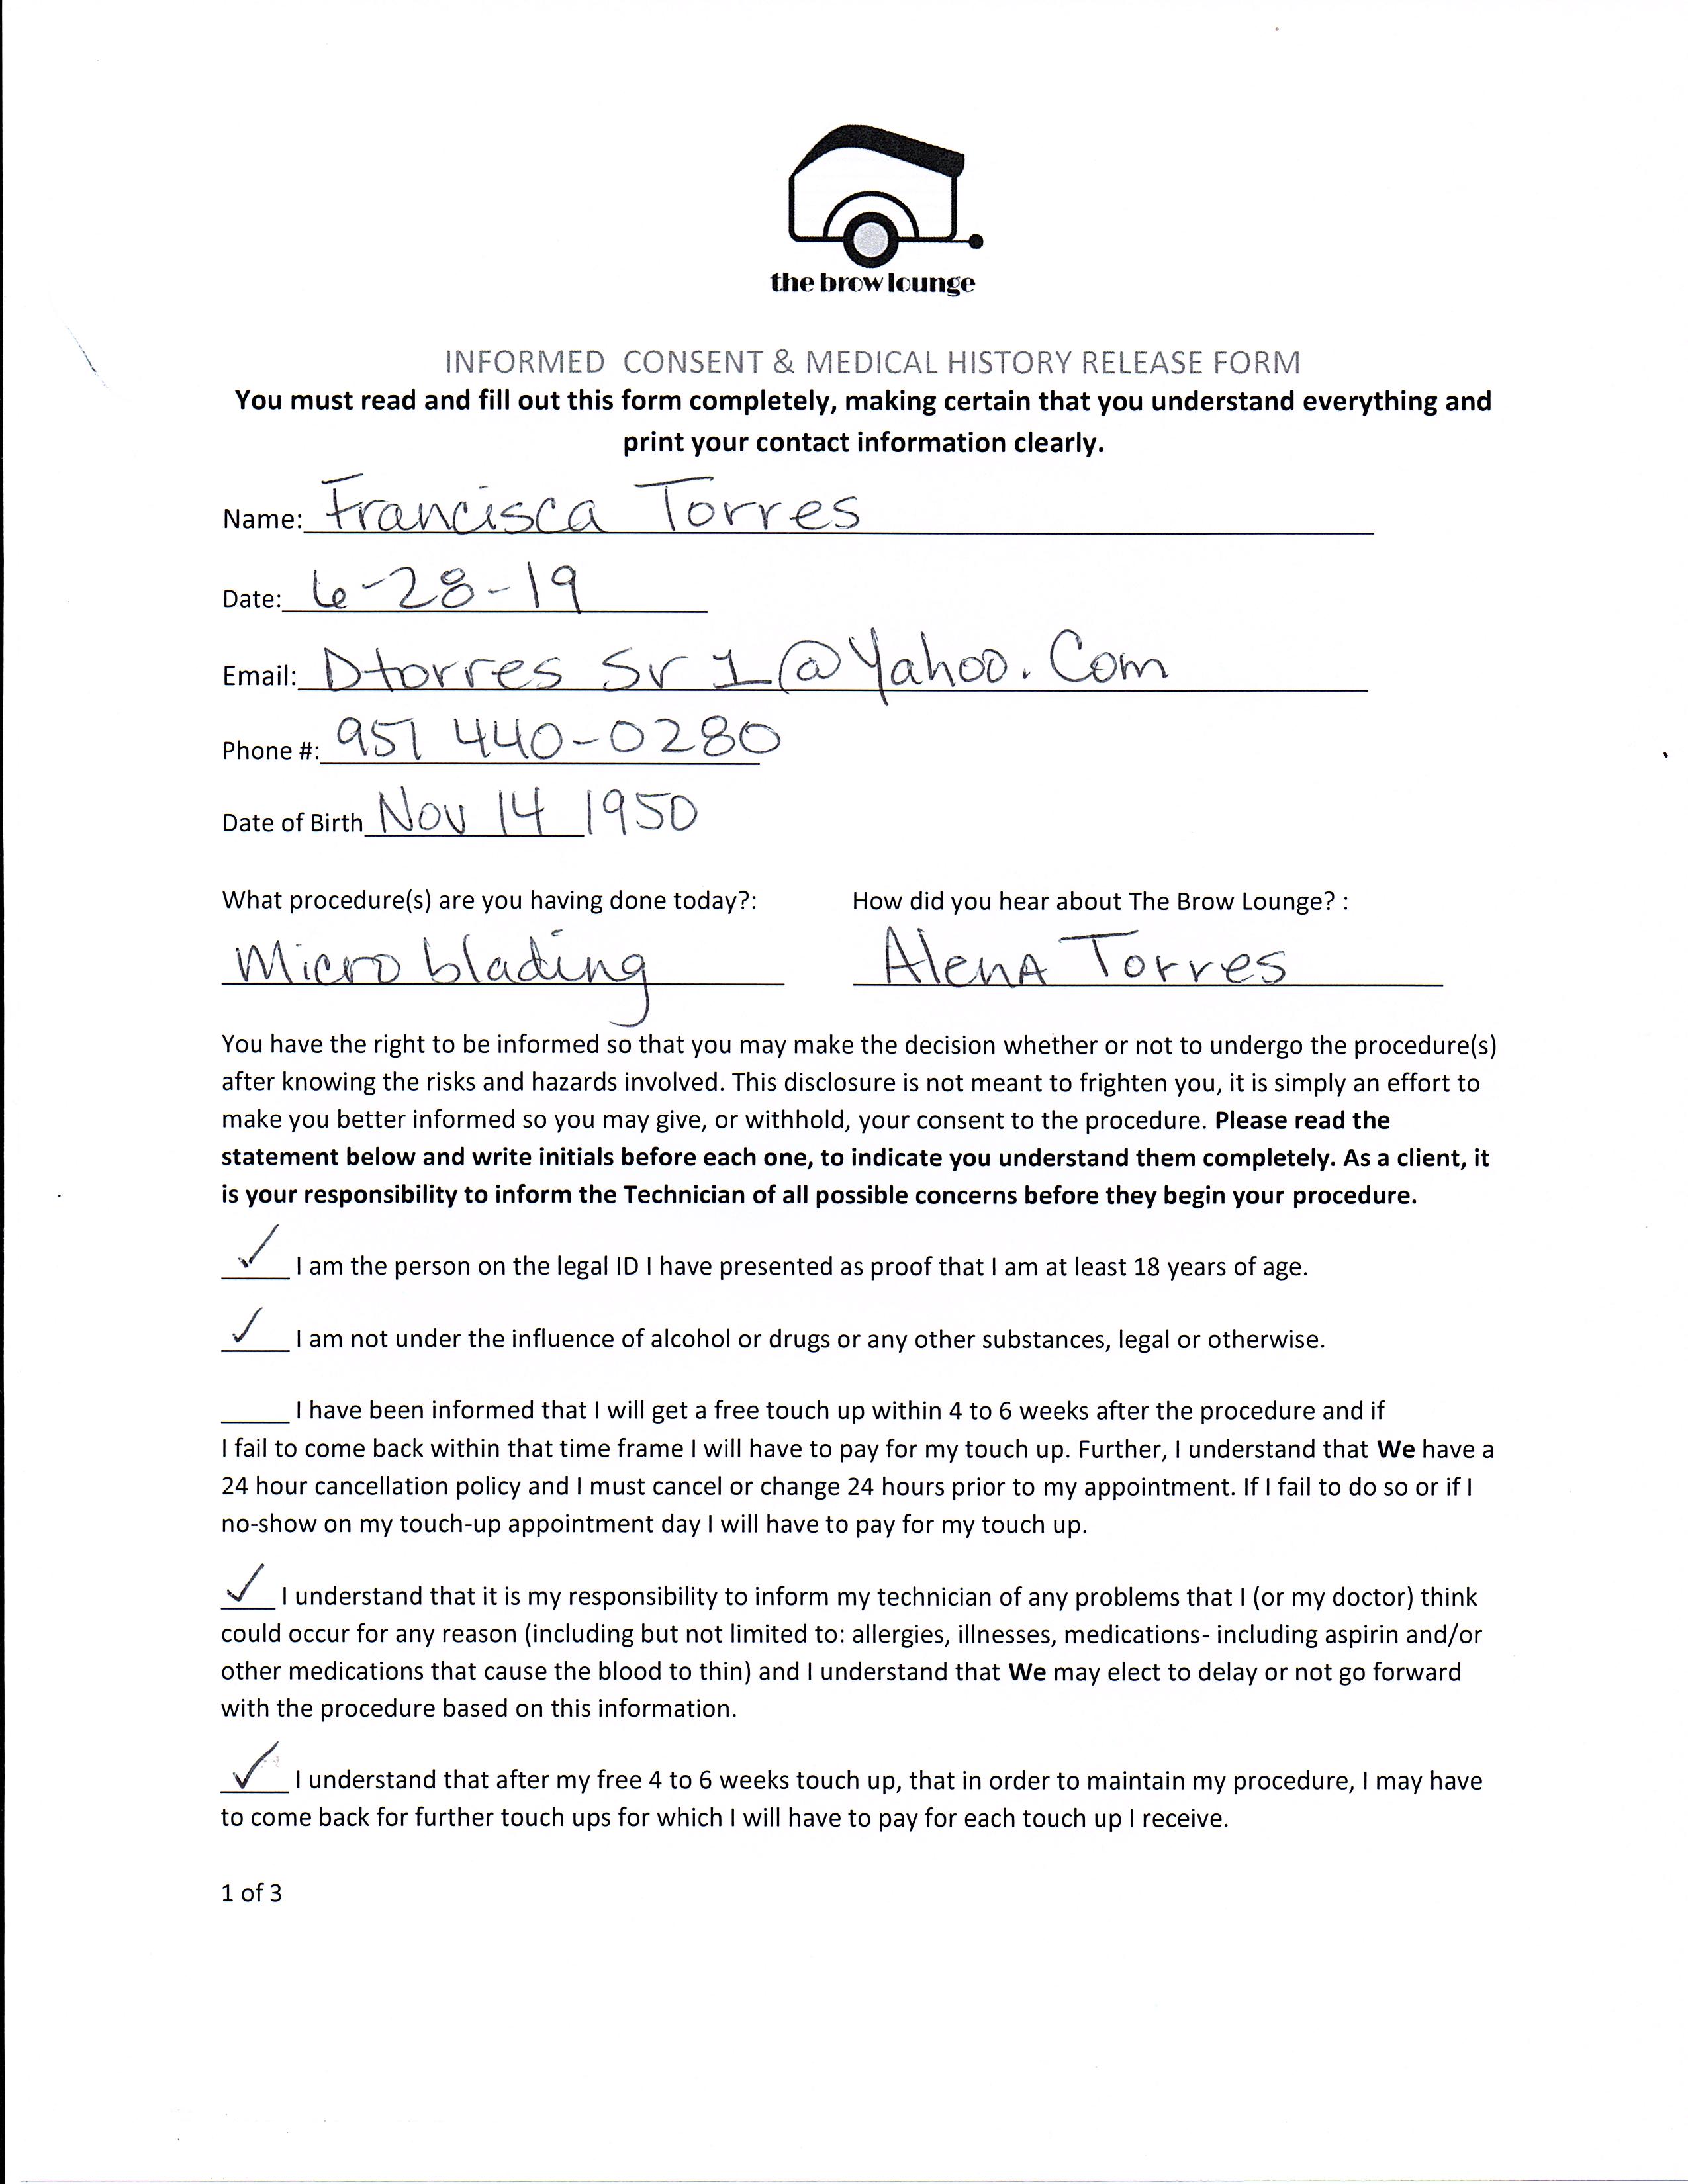 the brow lounge
INFORMED CONSENT & MEDICAL HISTORY RELEASE FORM
You must read and fill out this form completely, making certain that you understand everything and
print your contact information clearly.
Name: Francisca Torres
Date: 6-28-19
Email: Dtorres Sr 1@Yahoo.Com
Phone #: 951 440-0280
Date of Birth Nov 14 1950
What procedure(s) are you having done today?: How did you hear about The Brow Lounge? :
Micro blading AlenA Torres
You have the right to be informed so that you may make the decision whether or not to undergo the procedure(s)
after knowing the risks and hazards involved. This disclosure is not meant to frighten you, it is simply an effort to
make you better informed so you may give, or withhold, your consent to the procedure. Please read the
statement below and write initials before each one, to indicate you understand them completely. As a client, it
is your responsibility to inform the Technician of all possible concerns before they begin your procedure.
✓ I am the person on the legal ID I have presented as proof that I am at least 18 years of age.
✓ I am not under the influence of alcohol or drugs or any other substances, legal or otherwise.
I have been informed that I will get a free touch up within 4 to 6 weeks after the procedure and if
I fail to come back within that time frame I will have to pay for my touch up. Further, I understand that We have a
24 hour cancellation policy and I must cancel or change 24 hours prior to my appointment. If I fail to do so or if I
no-show on my touch-up appointment day I will have to pay for my touch up.
✓ I understand that it is my responsibility to inform my technician of any problems that I (or my doctor) think
could occur for any reason (including but not limited to: allergies, illnesses, medications- including aspirin and/or
other medications that cause the blood to thin) and I understand that We may elect to delay or not go forward
with the procedure based on this information.
✓ I understand that after my free 4 to 6 weeks touch up, that in order to maintain my procedure, I may have
to come back for further touch ups for which I will have to pay for each touch up I receive.
1 of 3